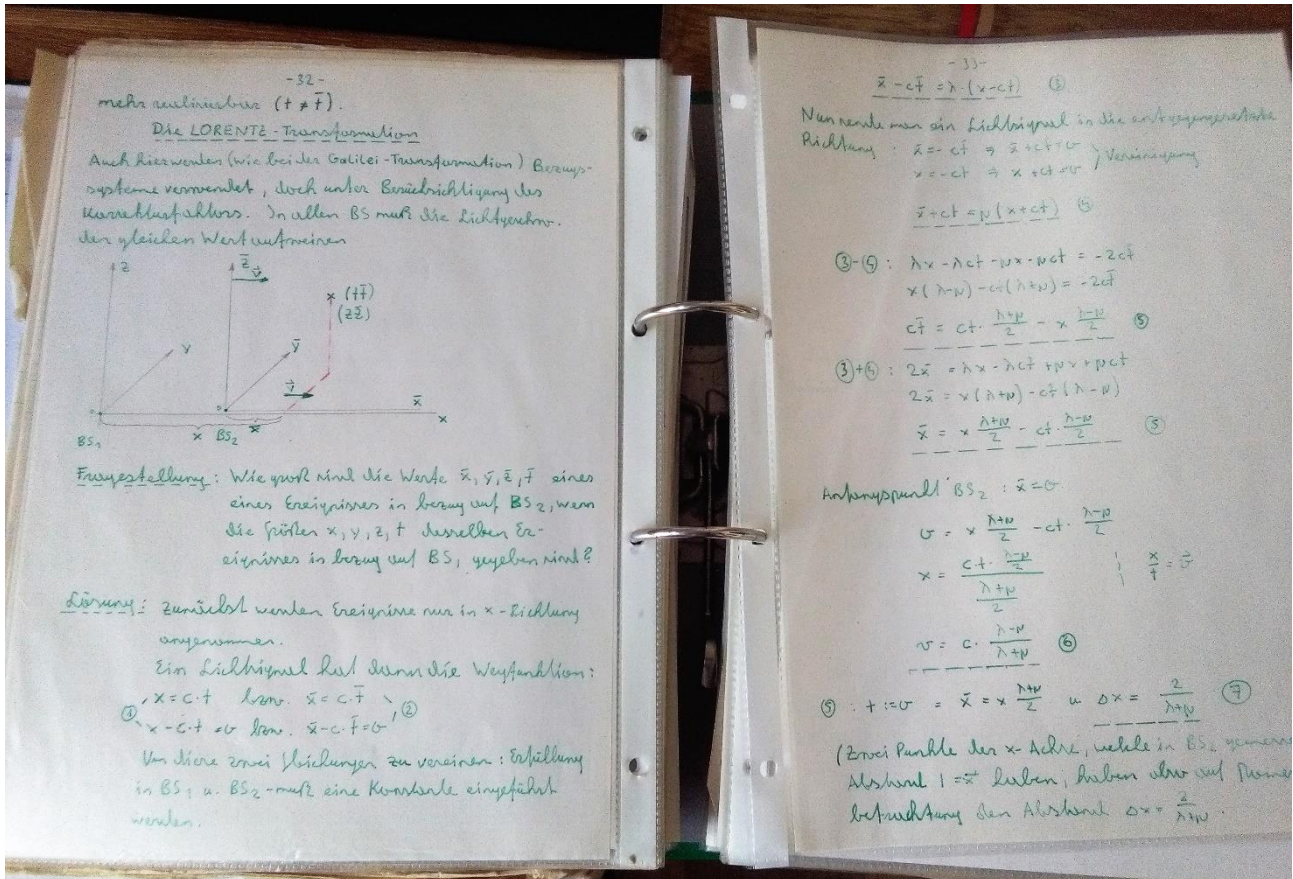 - 32 -
mehr realisierbar (t ≠ t̄).
Die LORENTZ-Transformation
Auch hier werden (wie bei der Galilei-Transformation) Bezugs-
systeme verwendet, doch unter Berücksichtigung des
In allen BS muß die Lichtgeschw.
den gleichen Wert aufweisen
z
z̄
v⃗
x (t t̄)
(z z̄)
y
ȳ
v⃗
x̄
x
x
x̄
BS₁
BS₂
Fragestellung: Wie groß sind die Werte x̄, ȳ, z̄, t̄ eines
eines Ereignisses in bezug auf BS₂, wenn
die Größen x, y, z, t desselben Er-
eignisses in bezug auf BS₁ gegeben sind?
Lösung: Zunächst werden Ereignisse nur in x-Richtung
angenommen.
Ein Lichtsignal hat dann die Wegfunktion:
x = c·t bzw. x̄ = c·t̄
① x - c·t = 0 bzw. x̄ - c·t̄ = 0 ②
Um diese zwei Gleichungen zu vereinen: Erfüllung
in BS₁ u. BS₂ - muß eine Konstante eingeführt
werden.
- 33 -
x̄ - ct̄ = λ·(x-ct) ③
Nun sende man ein Lichtsignal in die entgegengesetzte
Richtung: x̄ = -ct̄ ⇒ x̄ + ct̄ = 0
x = -ct ⇒ x + ct = 0 } Vereinigung
x̄ + ct̄ = μ(x+ct) ④
③-④: λx - λct - μx - μct = -2ct̄
x(λ-μ) - ct(λ+μ) = -2ct̄
ct̄ = ct · (λ+μ)/2 - x (λ-μ)/2 ⑤
③+④: 2x̄ = λx - λct + μx + μct
2x̄ = x(λ+μ) - ct(λ-μ)
x̄ = x (λ+μ)/2 - ct · (λ-μ)/2 ⑤
Anfangspunkt BS₂: x̄ = 0
0 = x (λ+μ)/2 - ct · (λ-μ)/2
x = (ct · (λ-μ)/2) / ((λ+μ)/2) | x/t = v⃗
v = c · (λ-μ)/(λ+μ) ⑥
⑤: t := 0 = x̄ = x (λ+μ)/2 u Δx = 2/(λ+μ) ⑦
(Zwei Punkte der x-Achse, welche in BS₂
Abstand 1 = x̄ haben, haben also auf
betrachtung den Abstand Δx = 2/(λ+μ).